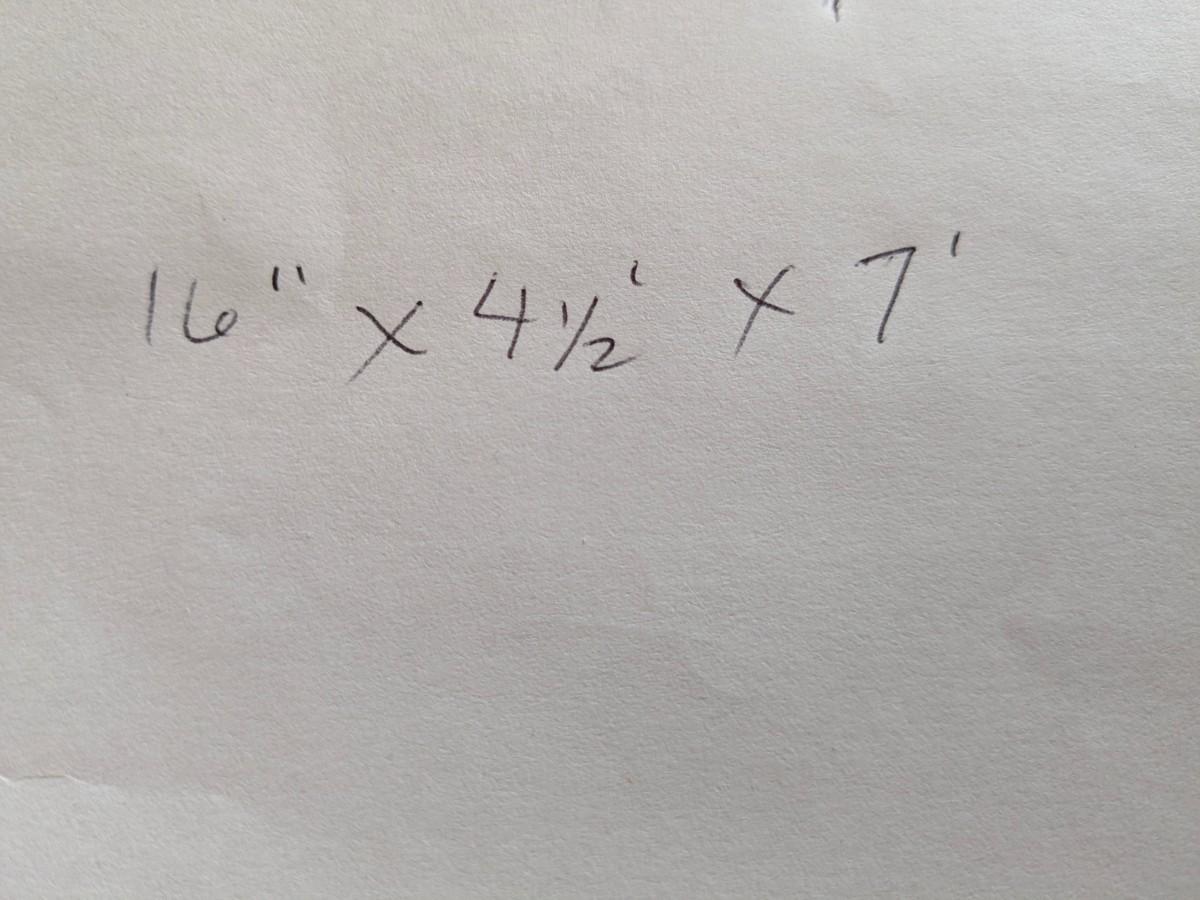 16" x 4 1/2' x 7'